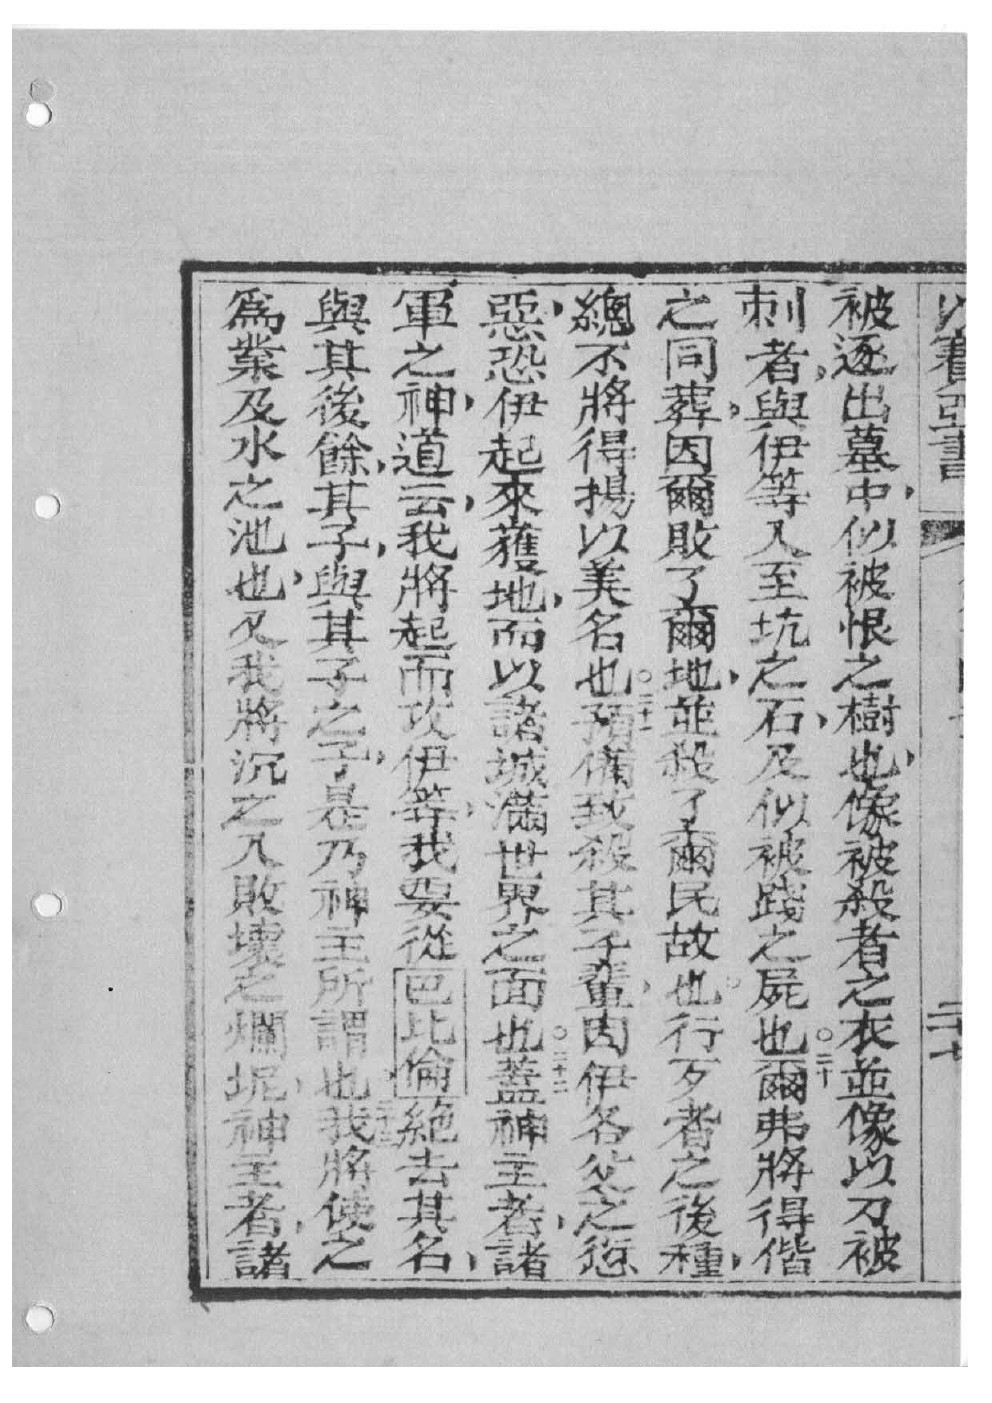 以賽亞書 二十七
被逐出墓中、似被恨之樹也、像被殺者之衣並像以刀被
刺者、與伊等入至坑之石、及似被踐之屍也○二十爾弗將得偕
之同葬、因爾敗了爾地、並殺了爾民故也○行歹者之後種、
總不將得揚以美名也○二十一預備致殺其子輩、因伊各父之愆
惡、恐伊起來獲地、而以諸城滿世界之面也○二十二蓋神主者、諸
軍之神、道云、我將起而攻伊等、我要從巴比倫絕去其名、
與其後餘、其子、與其子之子、是乃神主所謂也我將使之
為業及水之池也、又我將沉之入敗壞之爛坭、神主者、諸